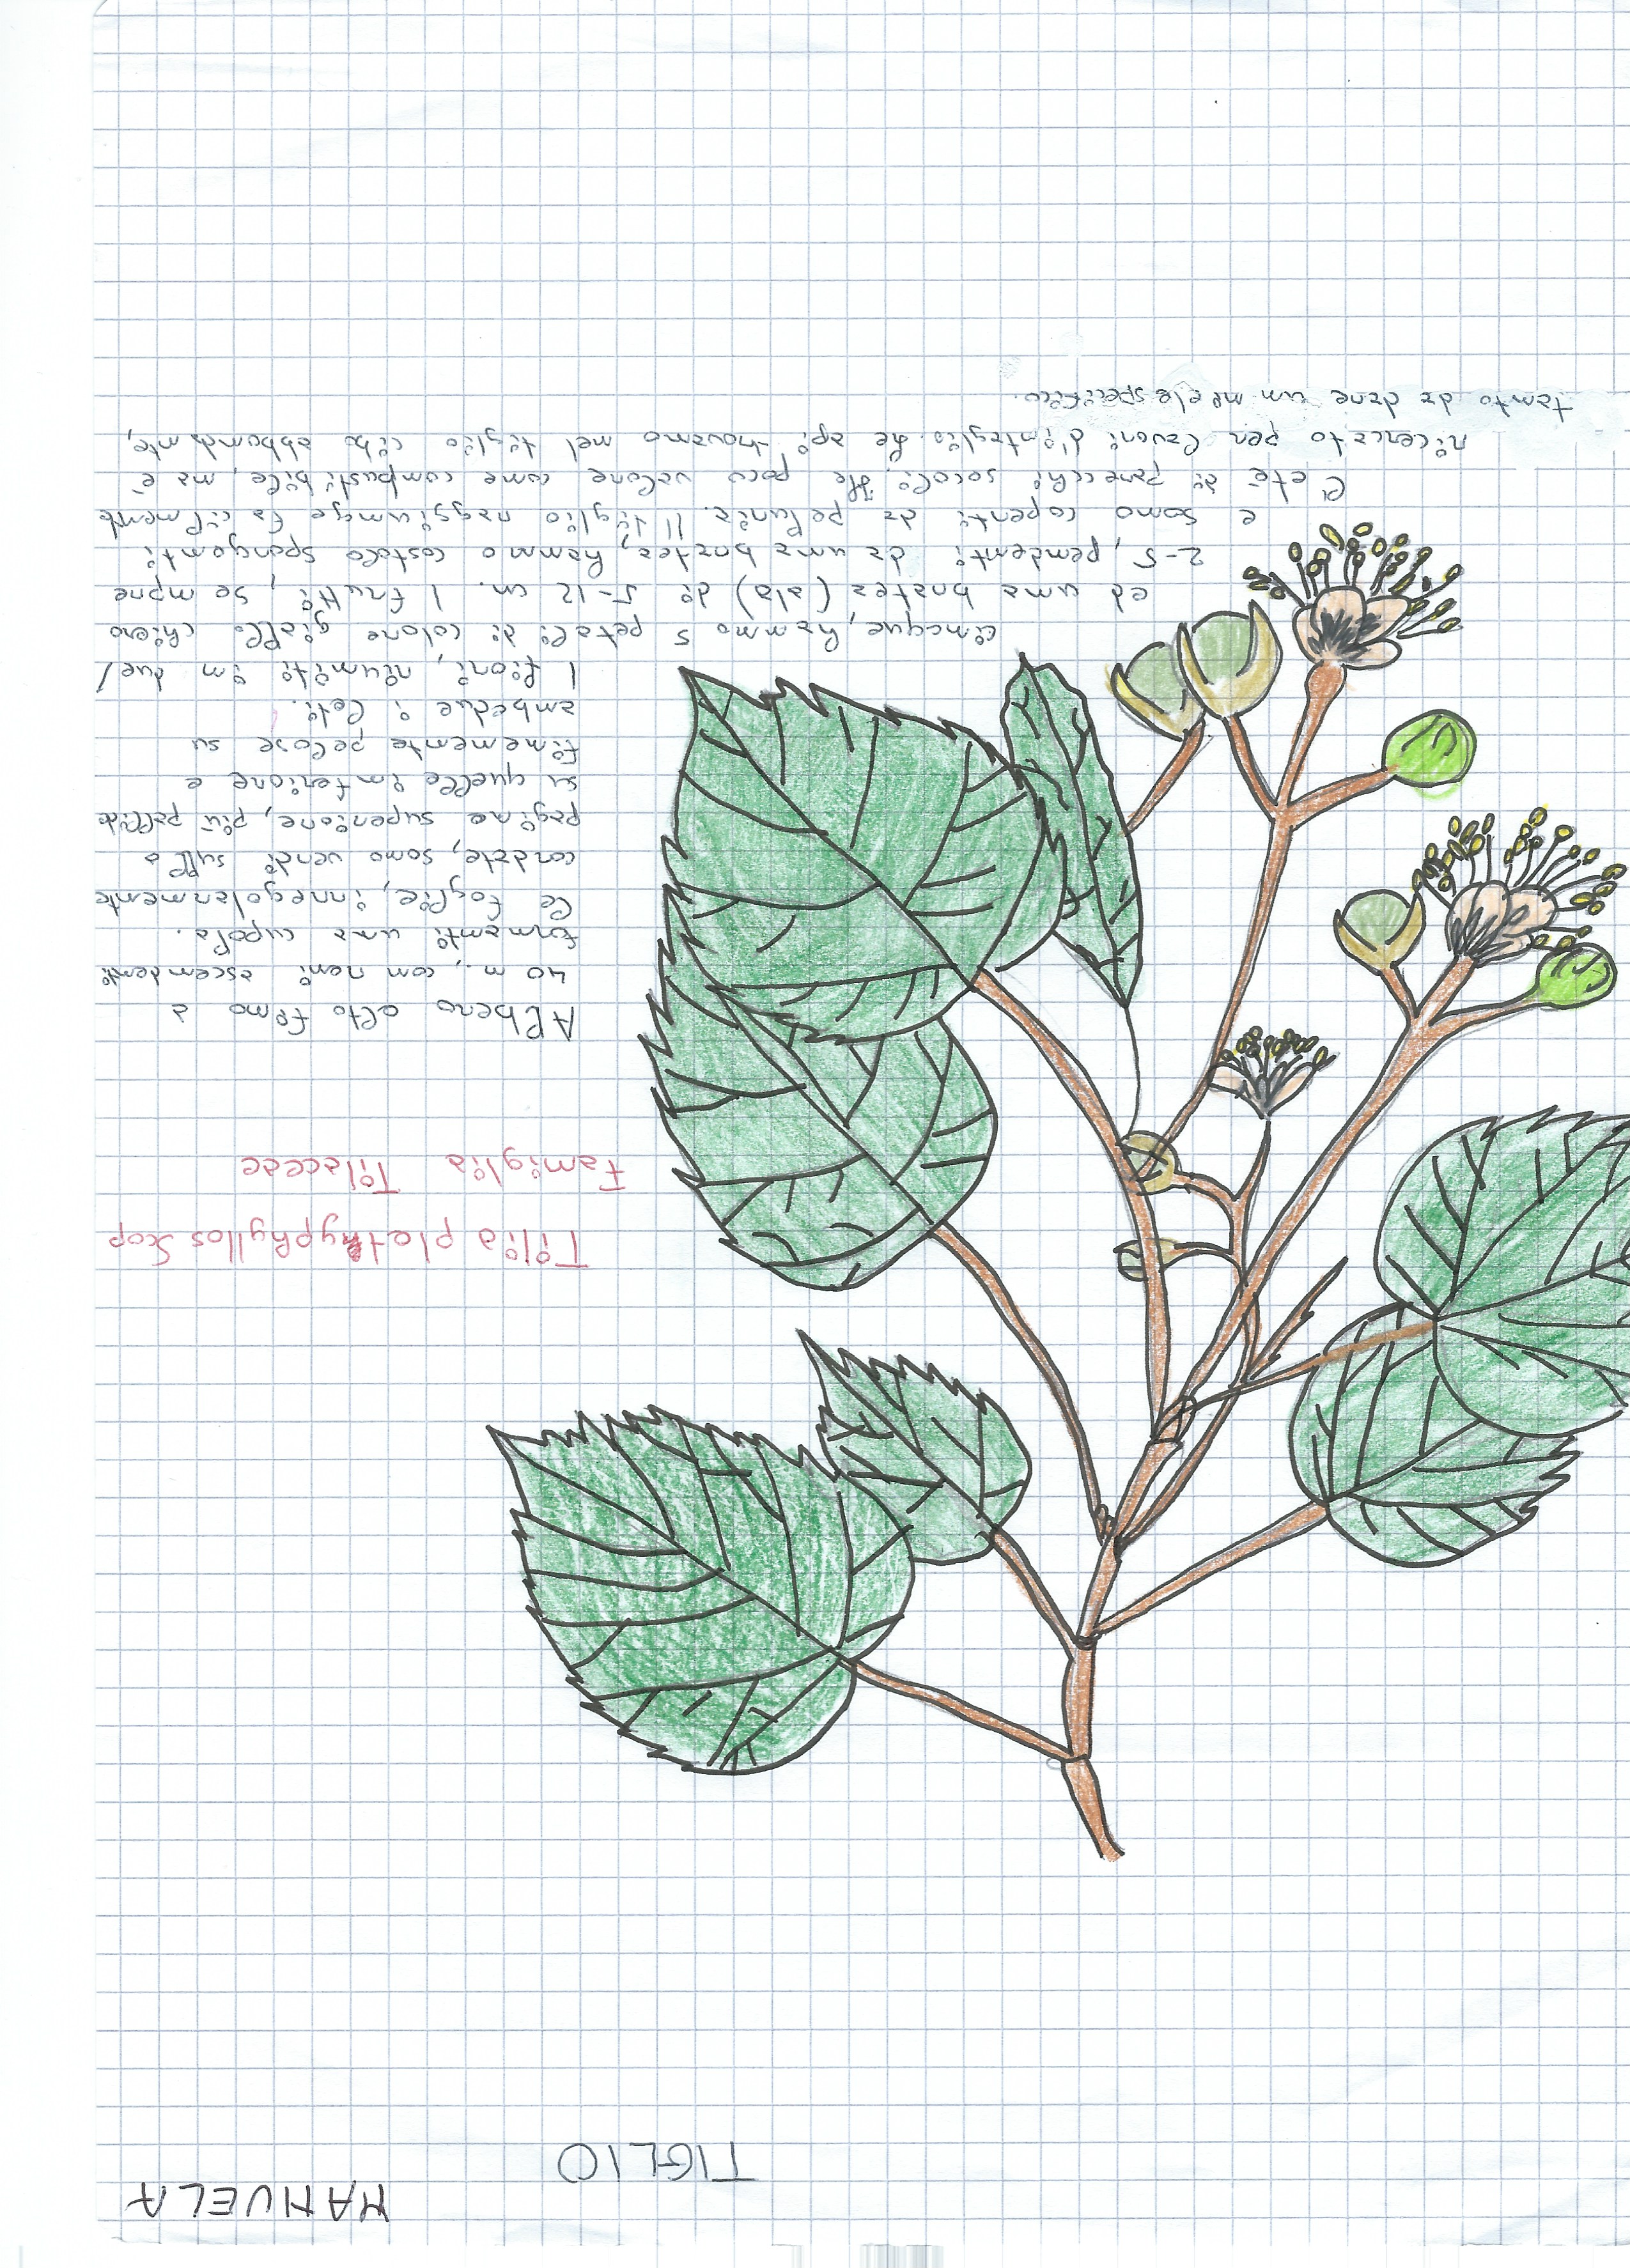 MANUELA
TIGLIO
Tilia plathyphyllos Scop
Famiglia Tilaceae
Albero alto fino a
40 m., con rami ascendenti
formanti una cupola.
Le foglie, irregolarmente
cordate, sono verdi sulla
pagina superiore, più pallide
su quella inferiore e
finemente pelose su
ambedue i lati.
I fiori, riuniti in due/
cinque, hanno 5 petali di colore giallo chiaro
ed una brattea (ala) di 5-12 cm. I frutti, sempre
2-5, pendenti da una brattea, hanno costole sporgenti
e sono coperti da peluria. Il tiglio raggiunge facilmente
l'età di parecchi secoli. Ha poco valore come compustibile, ma è
ricercato per lavori d'intaglio. Le api trovano nel tiglio cibo abbondante,
tanto da dare un miele specifico.